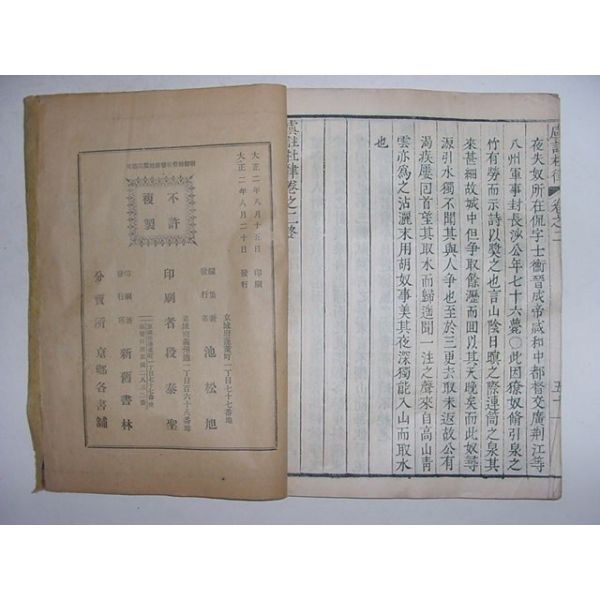 虞註杜律 卷之二 五十一
夜失奴所在侃字士衡晉成帝咸和中都督交廣荆江等
八州軍事封長沙公年七十六薨〇此因獠奴脩引泉之
竹有勞而示詩以奬之也言山陰日暝之際連筒之泉其
來甚細故城中但爭取餘瀝而回以其天晚矣而此奴尋
源引水獨不聞其與人爭也至於三更去取未返故公有
渴疾屢回首望其取水而歸遙聞一注之聲來自高山靑
雲亦爲之沾灑末用胡奴事美其夜深獨能入山而取水
也
虞註杜律卷之二終
大正二年八月十五日 印刷
大正二年八月二十日 發行
不許
複製
京城府蓬萊町一丁目七十七番地
發行者 池松旭
京城府
印刷者 段泰聖
印刷所
發行所 新舊書林
分賣所 京鄕各書鋪